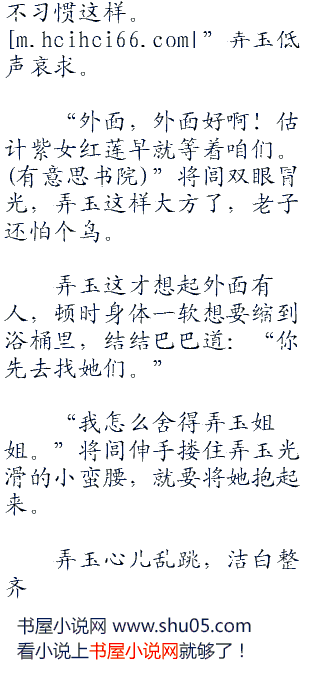 不习惯这样。
[m.hcihci66.com|”弄玉低
声哀求。
“外面，外面好啊！估
计紫女红莲早就等着咱们。
(有意思书院)”将闾双眼冒
光，弄玉这样大方了，老子
还怕个鸟。
弄玉这才想起外面有
人，顿时身体一软想要缩到
浴桶里，结结巴巴道：“你
先去找她们。”
“我怎么舍得弄玉姐
姐。”将闾伸手搂住弄玉光
滑的小蛮腰，就要将她抱起
来。
弄玉心儿乱跳，洁白整
齐
书屋小说网 www.shu05.com
看小说上书屋小说网就够了！